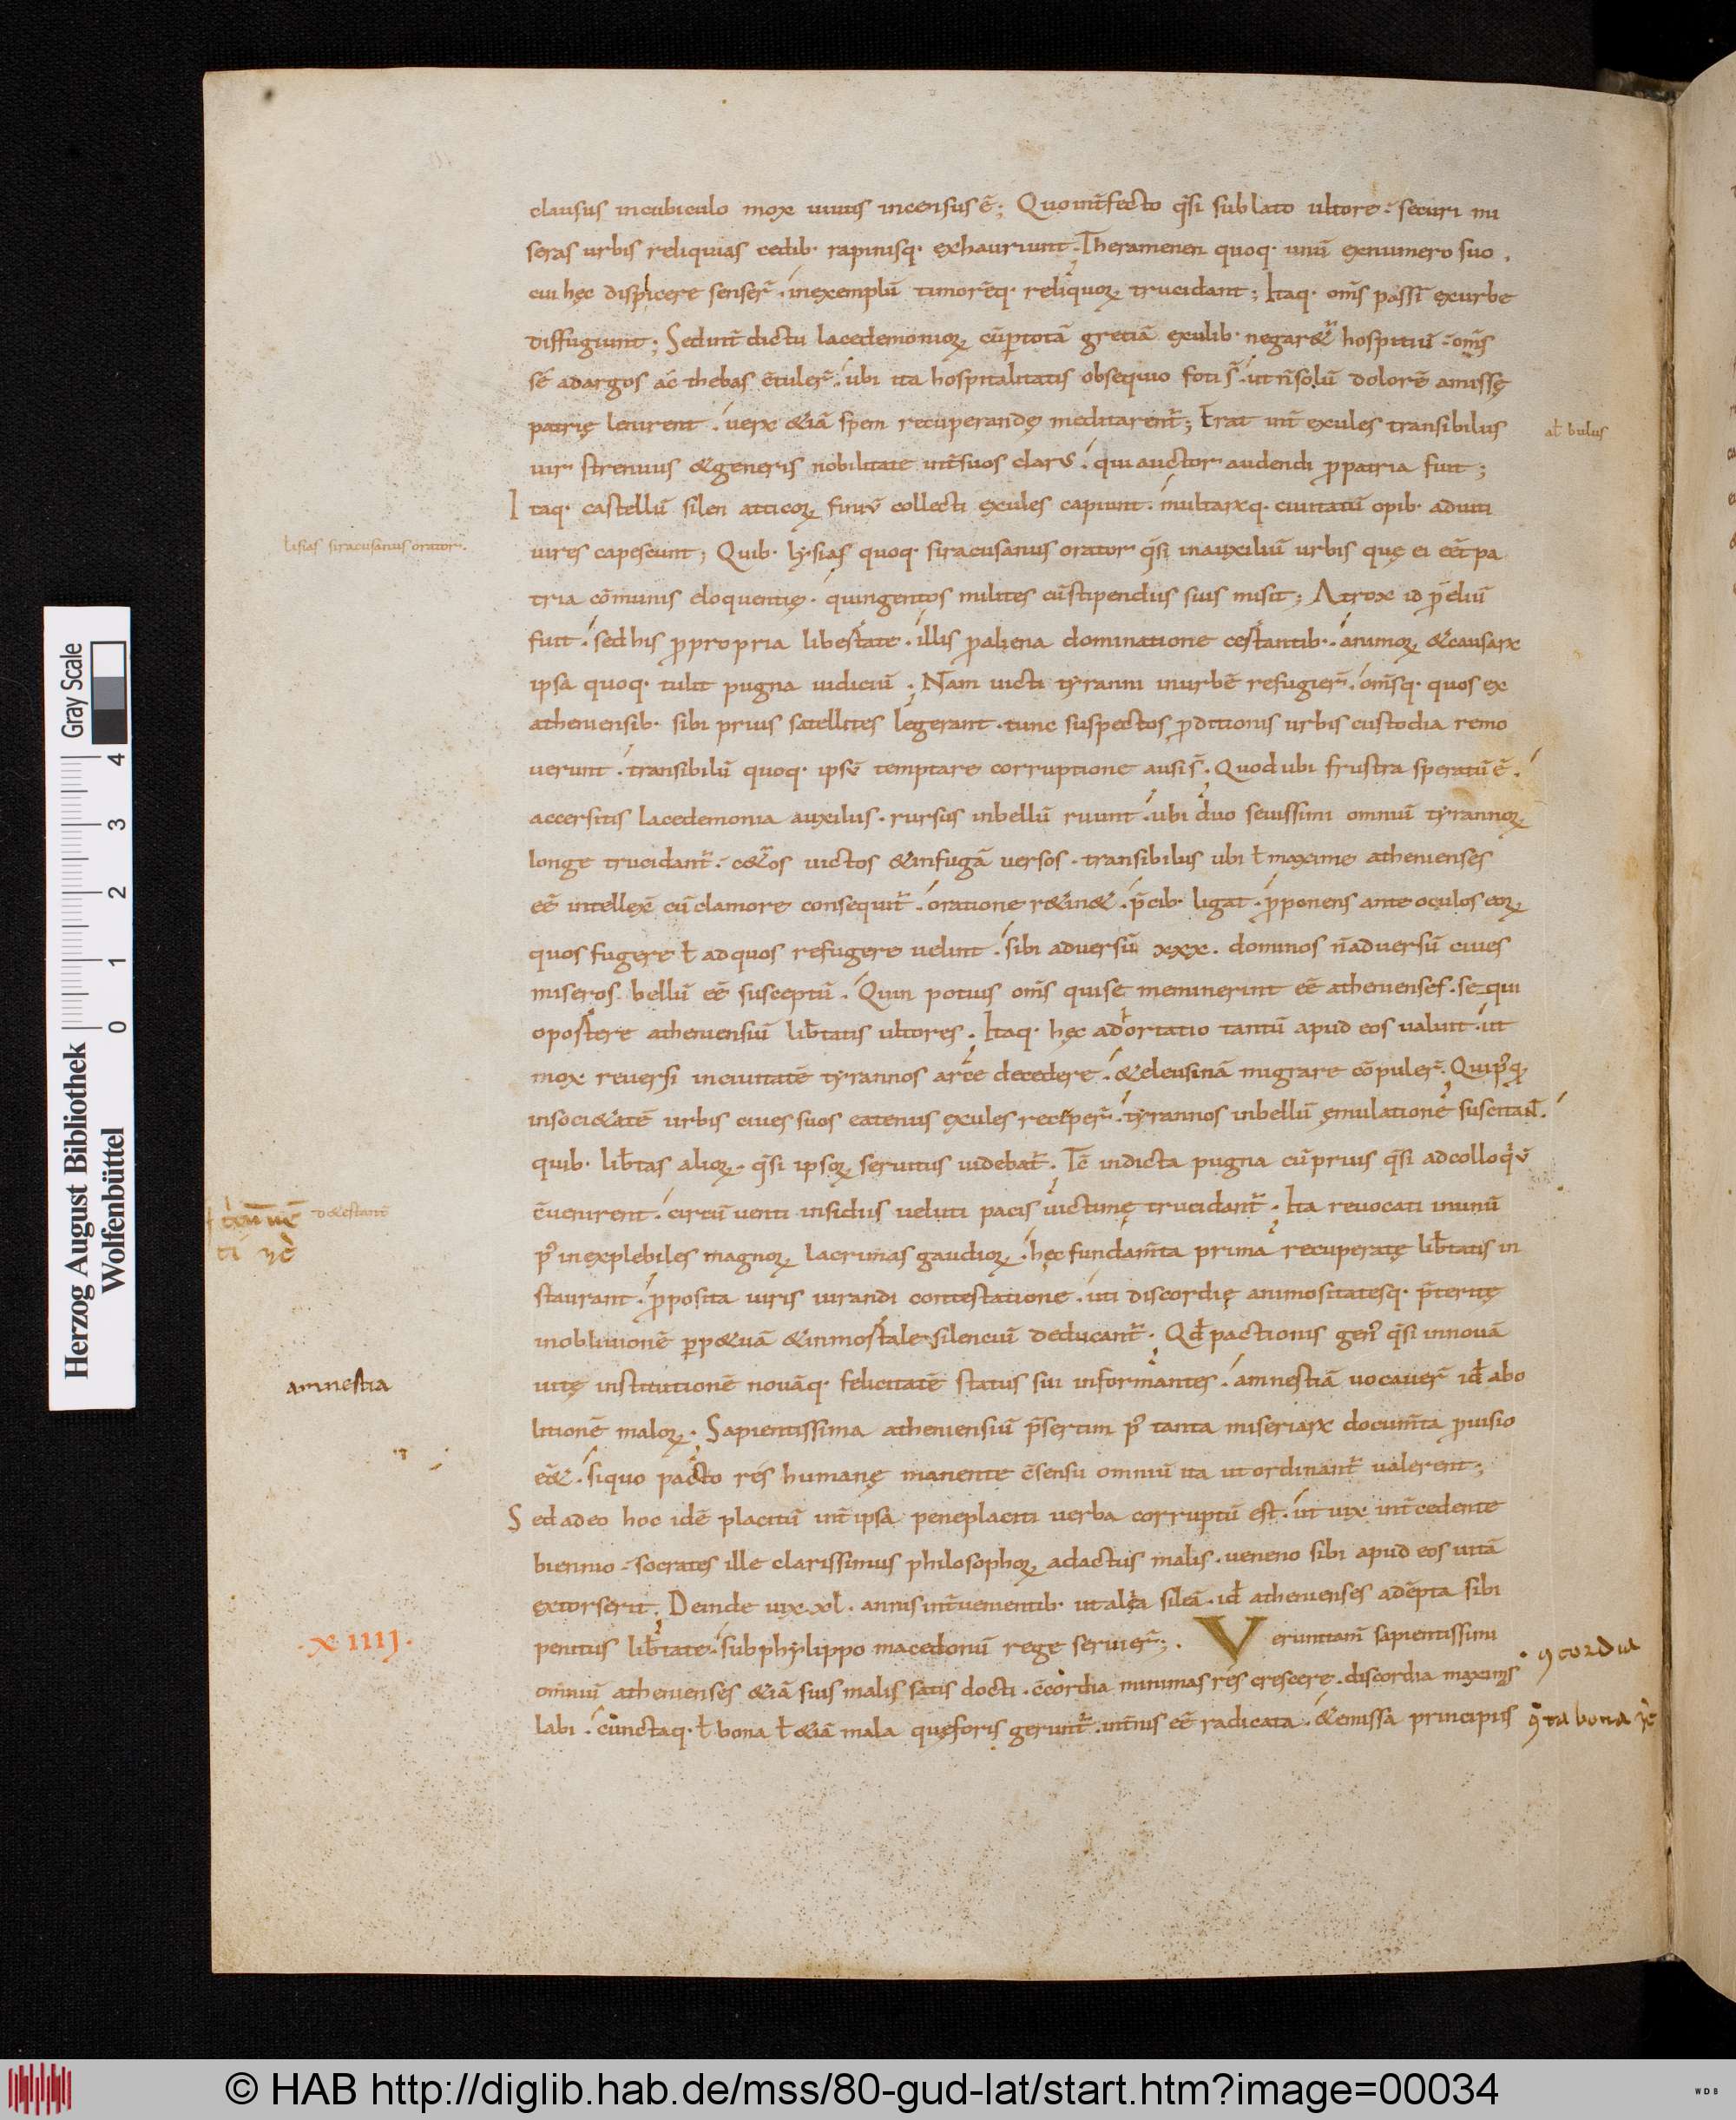 clausus incubiculo mox uiuus incensus ē; Quo int̄fecto q̄si sublato ultore. securi mi
seras urbis reliquias cedib· rapinisq· exhauriunt. Theramenen quoq· unū exnumero suo.
cui hęc displicere senser̄. inexemplū timorēq· reliquoꝝ trucidant; Itaq· om̄s passī exurbe
diffugiunt; Sed int̄dictu lacedemonioꝝ cū ꝑ totā greciā exulib· negar&ur hospitiū. om̄s
sē adargos ac thebas c̄tuler̄. ubi ita hospitalitatis obsequio foti s̄. ut n̄ solū dolorē amissę
patrię lenirent. uerx &iā spem recuperandę meditarent̄; Erat int̄ exules transibilus
al̄ bulus
uir strenuus & generis nobilitate int̄ suos clarus. qui auctor audendi ꝓpatria fuit;
Itaq· castellū silen atticoꝝ finiū collecti exules capiunt. multarxq· ciuitatū opib· aduti
lisias siracusanus orator.
uires capescunt; Quib· lysias quoq· siracusanus orator q̄si inauxiliū urbis quę ei eēt pa
tria cōmunis eloquentię. quingentos milites cū stipendiis suis misit; Atrox id p̄eliū
fuit. sed his ꝓpropria libertate. illis ꝓaliena dominatione certantib·. animoꝝ & causarx
ipsa quoq· tulit pugna iudiciū. Nam uicti tyranni inurbē refugier̄. om̄sq· quos ex
atheniensib· sibi prius satellites legerant. tunc suspectos ꝓditionis urbis custodia remo
uerunt. transibilū quoq· ipsū temptare corruptione ausi s̄. Quod ubi frustra speratū ē.
accersitis lacedemonia auxiliis. rursus inbellū ruunt. ubi duo seuissimi omniū tyrannoꝝ
longe trucidant̄. c&ēros uictos & infugā uersos. transibilus ubi ł maxime athenienses
eē intellexē cū clamore consequit̄. oratione r&in&. p̄cib· ligat. ꝓponens ante oculos eoꝝ
quos fugere ł adquos refugere uelint. sibi aduersū xxx. dominos n̄ aduersū ciues
miseros bellū eē susceptū. Quin potius om̄s qui se meminerint eē athenienses. sequi
oportere atheniensiū lib̄tatis ultores. Itaq· hęc adhortatio tantū apud eos ualuit. ut
mox reuersi inciuitatē tyrannos arce decedere. & eleusinā migrare cōpuler̄.
insoci&atē urbis ciues suos eatenus exules reciper̄. tyrannos inbellū emulatione
quib· lib̄tas alioꝝ. q̄si ipsoꝝ seruitus uidebat̄. Tc̄ indicta pugna cū prius q̄si adcolloq̄ū
d&estant
c̄uenirent. circū uenti insidiis ueluti pacis uictimę trucidant̄. Ita reuocati inunū
p̄ inexplebiles magnoꝝ lacrimas gaudioꝝ. hęc fundam̄ta prima recuperatę lib̄tatis in
staurant. ꝓposita uiris iurandi contestatione. uti discordię animositatesq· p̄teritę
inobliuionē ꝑp&uā & inmortale silenciū deducant̄. Qd̄ pactionis gen̄ q̄si innouā
amnestia
uitę institutionē nouāq· felicitatē status sui informantes. amnestiā uocauer̄ id̄ abo
litionē maloꝝ. Sapientissima atheniensiū p̄sertim p̄ tanta miseriarx docum̄ta ꝓuisio
eē&. siquo pacto res humanę manente c̄sensu omniū ita ut ordinant̄ ualerent;
Sed adeo hoc idē placitū int̄ ipsa peneplaciti uerba corruptū est. ut uix int̄cedente
biennio. socrates ille clarissimus philosophoꝝ adactus malis. ueneno sibi apud eos uitā
extorserit. Deinde uix xl. annis int̄uenientib· ut alia sileā. id̄ athenienses adēpta sibi
·XIIIJ.
penitus lib̄tate. sub phylippo macedonū rege seruier̄; Veruntam̄ sapientissimi
ꝯcordia
omniū athenienses &iā suis malis satis docti. c̄cordia minimas res crescere. discordia maximas
labi. cunctaq· ł bona ł &iā mala quę foris gerunt̄. int̄nus eē radicata. & emissa principiis
bona
Herzog August Bibliothek
Wolfenbüttel
Gray Scale
0 1 2 3 4
© HAB http://diglib.hab.de/mss/80-gud-lat/start.htm?image=00034
WDB